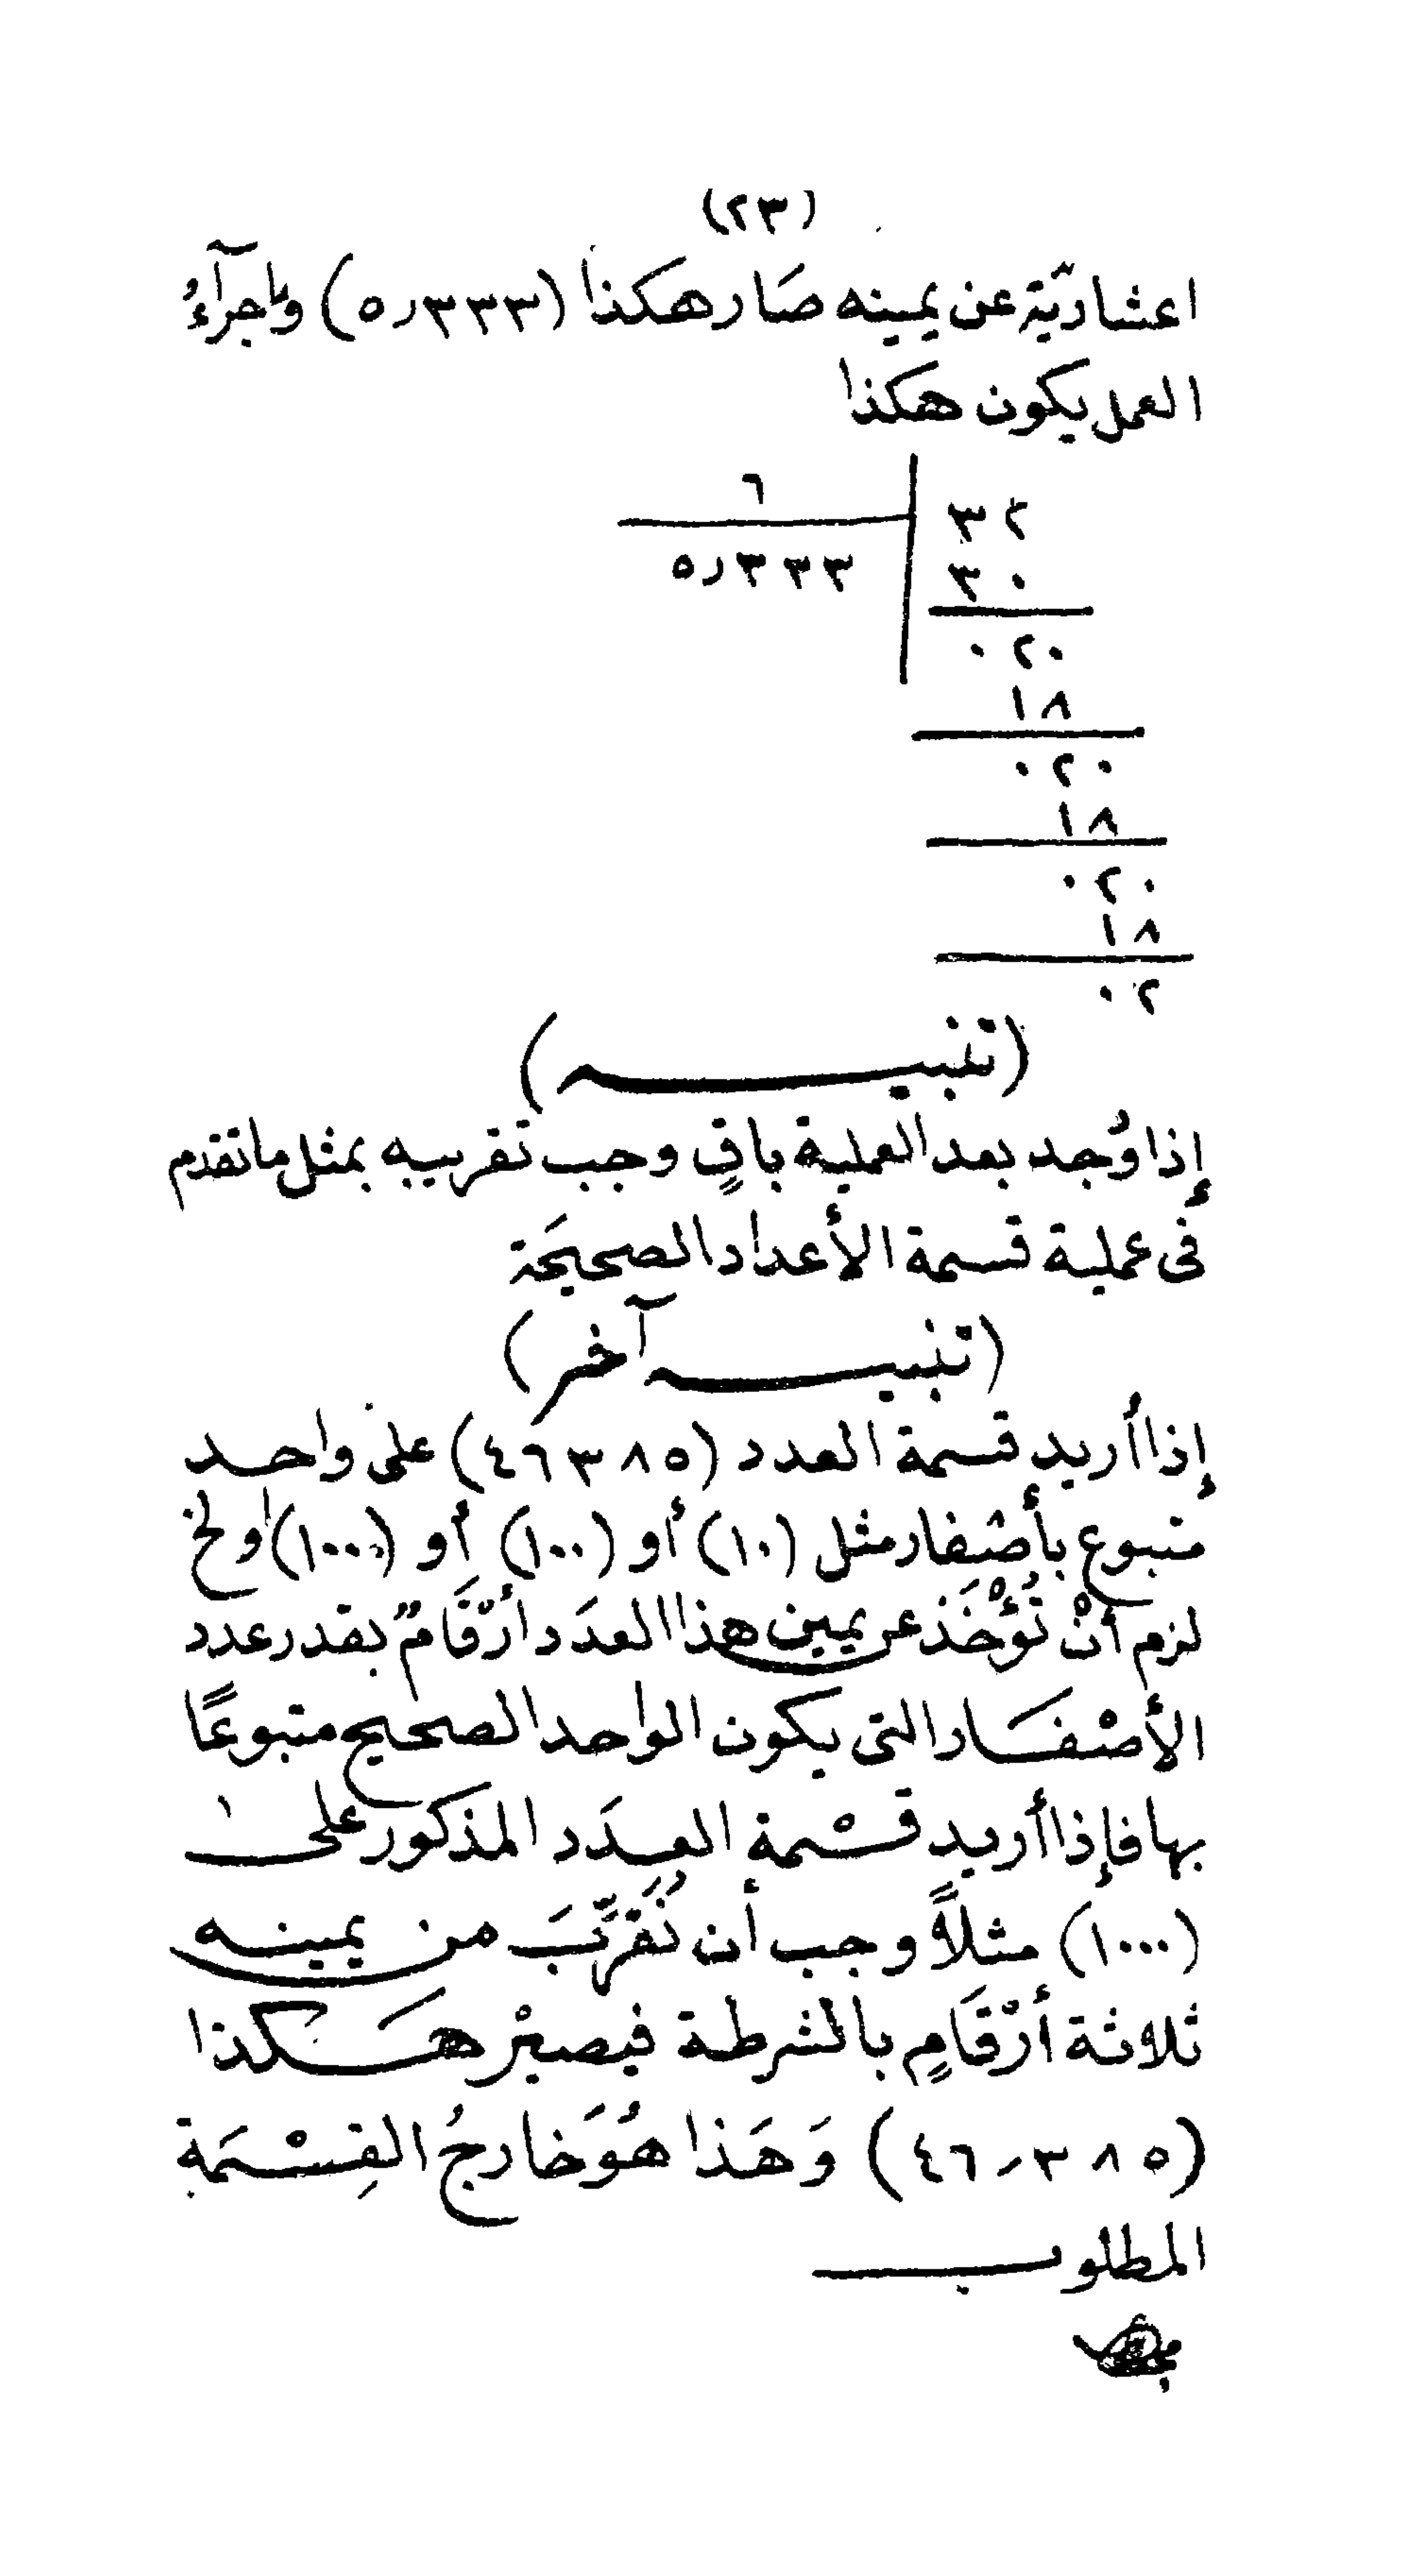 (٢٣)
اعشاريّة عن يمينه صَار هكذا (٥٫٣٣٣) وإجرآءُ
العمل يكون هكذا
٣٢ ٦
٣٠ ٥٫٣٣٣
٠٢٠
١٨
٠٢٠
١٨
٠٢٠
١٨
٠٢
(تنبيـــه)
إذا وُجد بعد العملية باقٍ وجب تقريبه بمثل ما تقدم
فى عملية قسمة الأعداد الصحيحَة
(تنبيـــه آخر)
إذا أُريد قسمة العدد (٤٦٣٨٥) على واحد
متبوع بأصْفار مثل (١٠) أو (١٠٠) أو (١٠٠٠) أولخ
لزم أنْ تُؤْخَذ عن يمين هذا العدَد أرْقَامٌ بقدر عدد
الأصْفَار التى يكون الواحد الصحيح متبوعًا
بها فإذا أريد قسْمة العدَد المذكور على
(١٠٠٠) مثلاً وجب أن نُقَرِّبَ من يمينه
ثلاثة أرْقَامٍ بالشرطة فيصيْر هَكذا
(٤٦٫٣٨٥) وَهَذا هُوَ خارجُ القِسْمَة
المطلوب